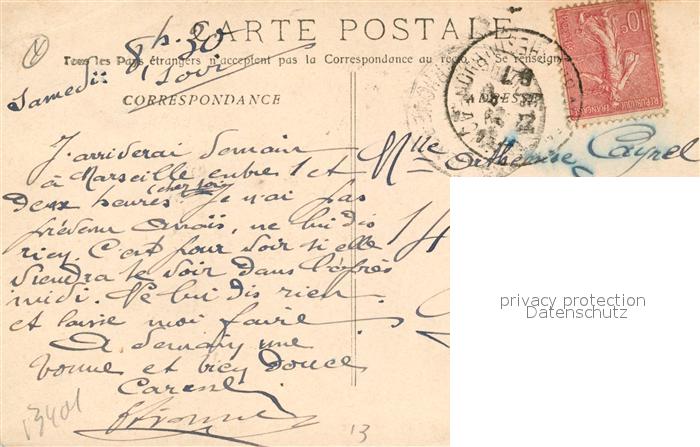 CARTE POSTALE
Tous les Pays étrangers n'acceptent pas la Correspondance au recto. Se renseign
Samedi 8h.30
Soir
CORRESPONDANCE
ADRESSE
J'arriverai demain
à Marseille entre 1 et
deux heures (chez toi) Je n'ai pas
prévenu Anaïs, ne lui dis
rien. C'est pour voir si elle
viendra te voir dans l'après
midi. Ne lui dis rien
et laisse moi faire
A demain une
bonne et bien douce
Caresse
Yvonne
Mlle Cayrol
14
privacy protection
Datenschutz
RÉPUBLIQUE FRANÇAISE
POSTES
10c
13401
13